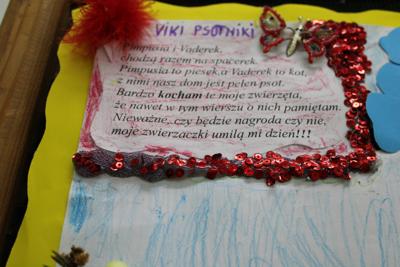 VIKI PSOTNIKI
Pimpusia i Vaderek,
chodzą razem na spacerek.
Pimpusia to piesek, a Vaderek to kot,
z nimi nasz dom jest pełen psot.
Bardzo kocham te moje zwierzęta,
że nawet w tym wierszu o nich pamiętam.
Nieważne, czy będzie nagroda czy nie,
moje zwierzaczki umilą mi dzień!!!